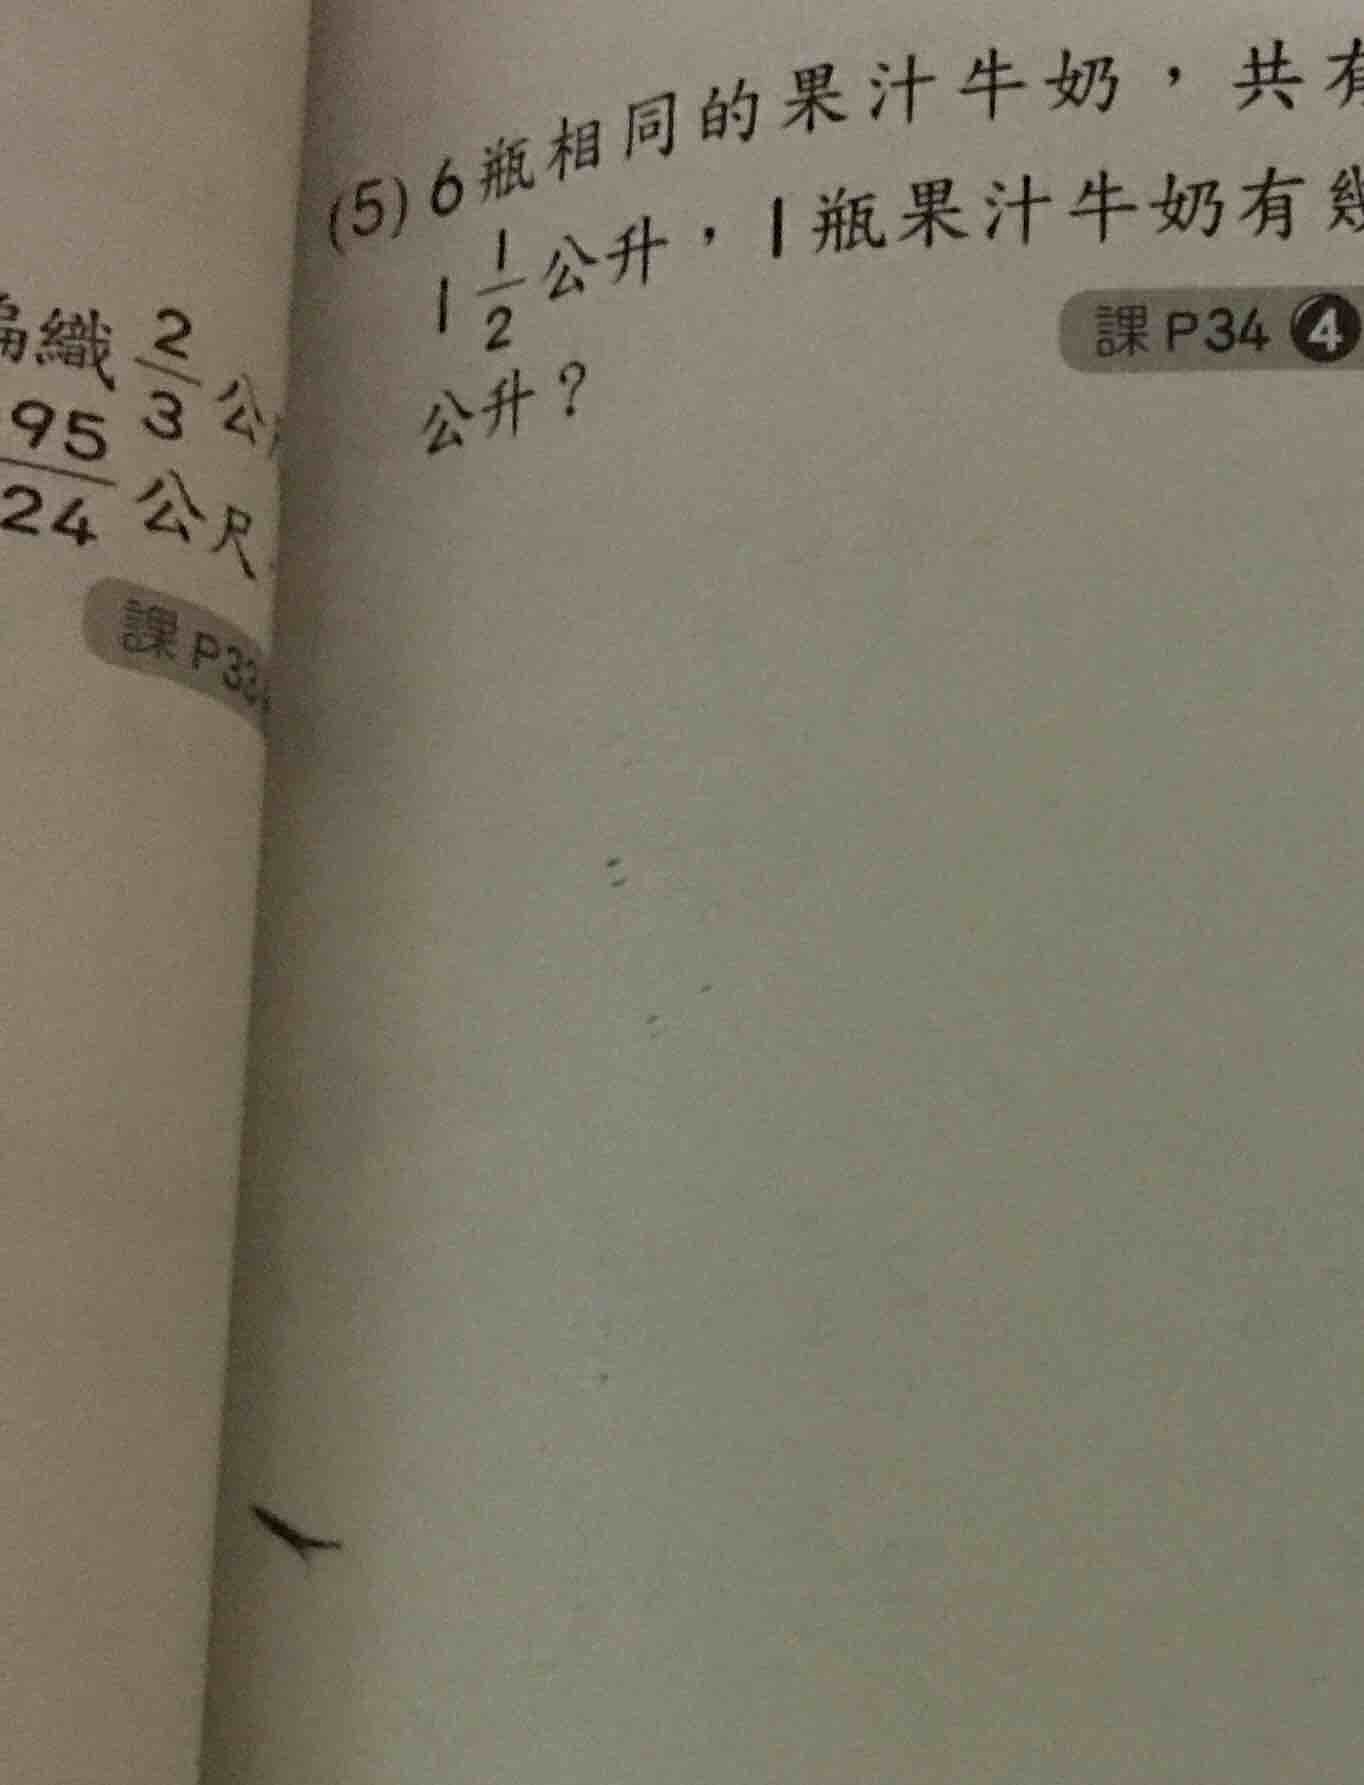 編織 2/3 公
95/24 公尺
課 P33
(5) 6瓶相同的果汁牛奶，共有
1 1/2 公升，1瓶果汁牛奶有幾
課 P34 ❹
公升？